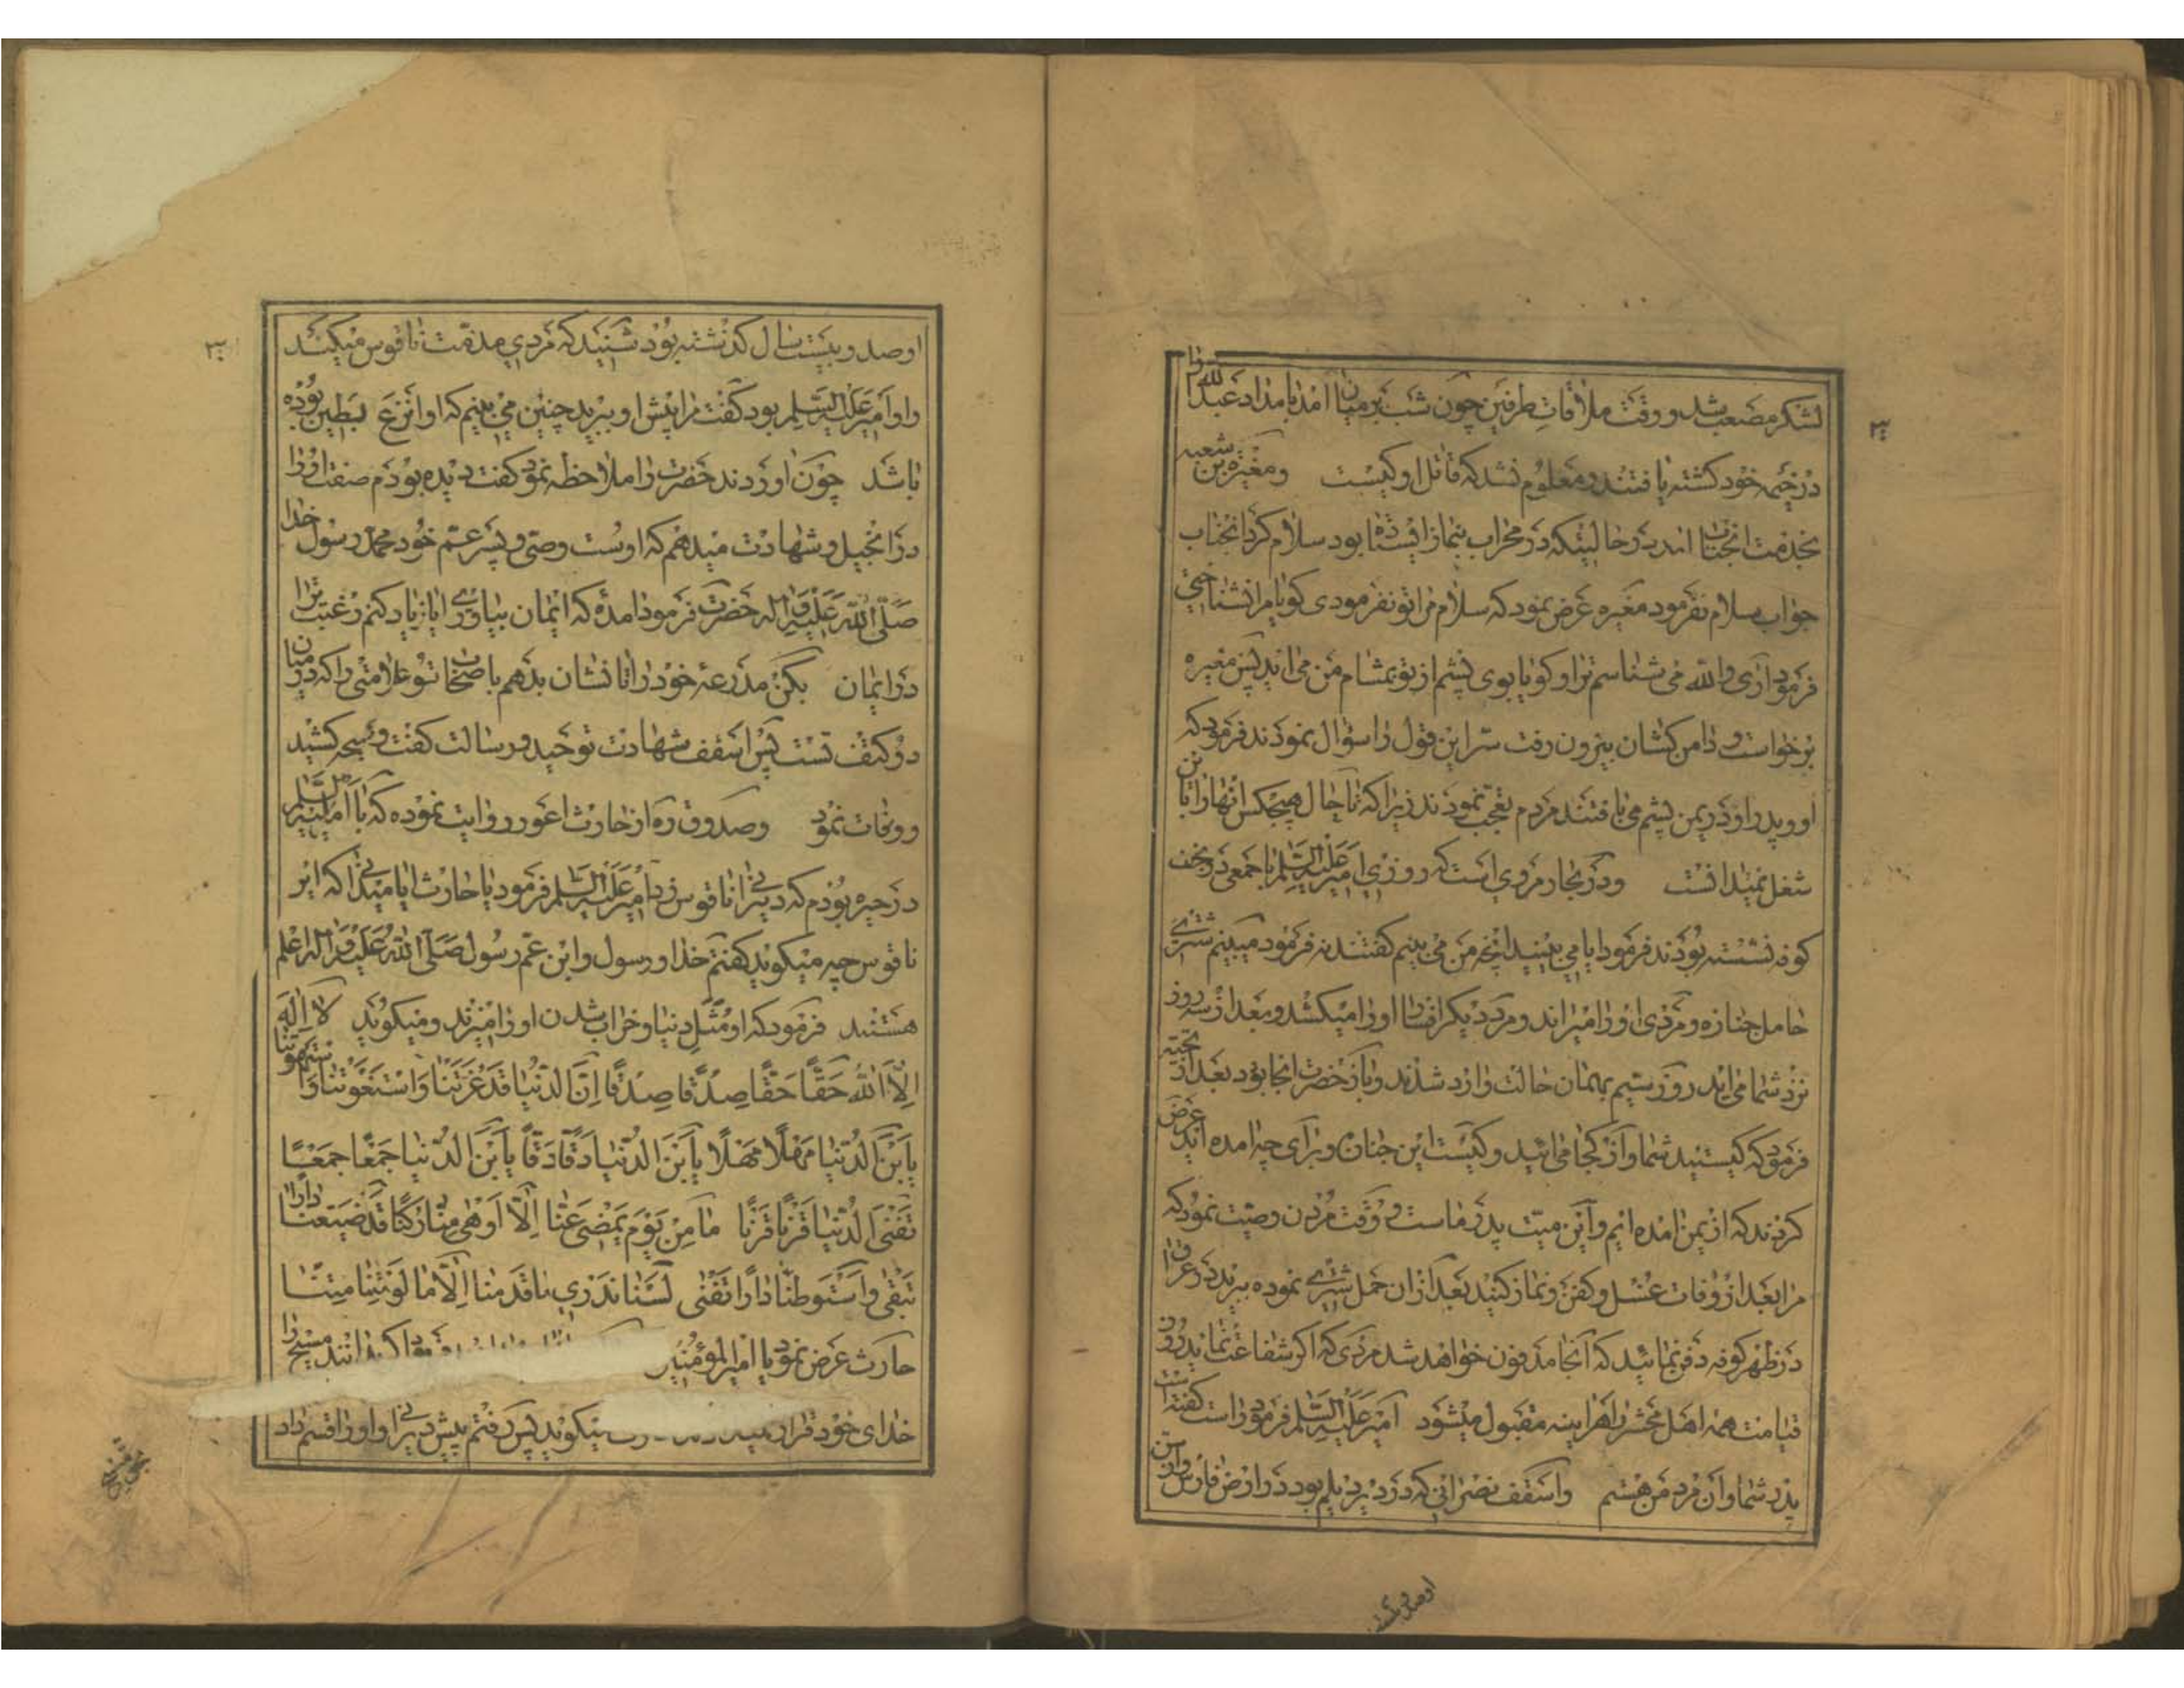 لشکر مصعب شد و وقت ملاقات طرفین چون شب بر میان آمد بامداد عبدالله را
در خیمه خود کشته یافتند و معلوم نشد که قاتل او کیست ومغیره بن شعبه
بخدمت انجناب امد در حالتیکه در محراب بنماز ایستاده بود سلام کرد انجناب
جواب سلام نفرمود مغیره عرض نمود که سلام مرا تو نفرمودی کویا مرا نشناختی
فرمود آری والله می شناسم ترا و کویا بوی پشم از تو بمشام من می اید پس مغیره
برخواست و دامن کشان بیرون رفت سر این قول را سؤال نمودند فرمود که
او و پدر او در یمن پشم می بافتند مردم تعجب نمودند زیرا که تا حال هیچکس انها را باین
شغل نمیدانست ودر بحار مرویست که روزی امیر علیه السلام با جمعی در نجف
کوفه نشسته بودند فرمود ایا می بینید انچه من می بینم کفتند نه فرمود میبینم شتری
حامل جنازه و مردی او را میراند و مرد دیکر افسار او را میکشد و بعد از سه روز
نزد شما می اید روز سیم بهمان حالت وارد شدند و باز حضرت انجا بود بعد از تحیه
فرمود که کیستید شما و از کجا می ائید و کیست این جنازه و برای چه امده اید عرض
کردند که از یمن امده ایم و این میت پدر ماست و در وقت مردن وصیت نمود که
مرا بعد از وفات غسل و کفن و نماز کنید بعد از ان حمل شتری نموده ببرید در عراق
در ظهر کوفه دفن نمائید که آنجا مدفون خواهد شد مردی که اکر شفاعت نماید روز
قیامت همه اهل محشر را هر اینه مقبول میشود امیر علیه السلام فرمود راست کفته است
پدر شما و آن مرد من هستم واسقف نصرانی که در دیر دیلم بود در ارض فارس و از سن
او صد و بیست
او صد و بیست سال کذشته بود شنید که مردی مدقت ناقوس میکند
و او امیر علیه السلام بود کفت مرا پیش او ببرید چنین می بینم که او انزع بطین بوده
باشد چون اوردند حضرت را ملاحظه نمود کفت دیده بودم صفت او را
در انجیل و شهادت میدهم که اوست وصی و پسر عم خود محمد رسول خدا
صلی الله علیه واله حضرت فرمود امده که ایمان بیاوری ایا زیاد کنم رغبت ترا
در ایمان بکن مدرعه خود را تا نشان بدهم باصحاب تو علامتی را که در میان
دو کتف تست پس اسقف شهادت توحید و رسالت کفت و صیحه کشید
و وفات نمود وصدوق ره از حارث اعور روایت نموده که با امیر علیه السلام
در حیره بودم که دیرانی ناقوس زد امیر علیه السلام فرمود یا حارث ایا میدانی که این
ناقوس چه میکوید کفتم خدا و رسول و ابن عم رسول صلی الله علیه واله اعلم
هستند فرمود که او مثل دنیا و خراب شدن او را میزند و میکوید لا اله
الا الله حقا حقا صدقا صدقا ان الدنیا قد غرتنا واستغوتنا واستهوتنا
یابن الدنیا مهلا مهلا یابن الدنیا دقا دقا یابن الدنیا جمعا جمعا
تفنی الدنیا قرنا قرنا ما من یوم یمضی عنا الا اوهی منا رکنا قد ضیعنا دارا
تبقی واستوطنا دارا تفنی لسنا ندری ما قدمنا الا ما لو نثنا متنا
حارث عرض نمود یا امیر المؤمنین مسیح را
خدای خود قرار میکوید پس رفتم پیش دیرانی و او را قسم داد